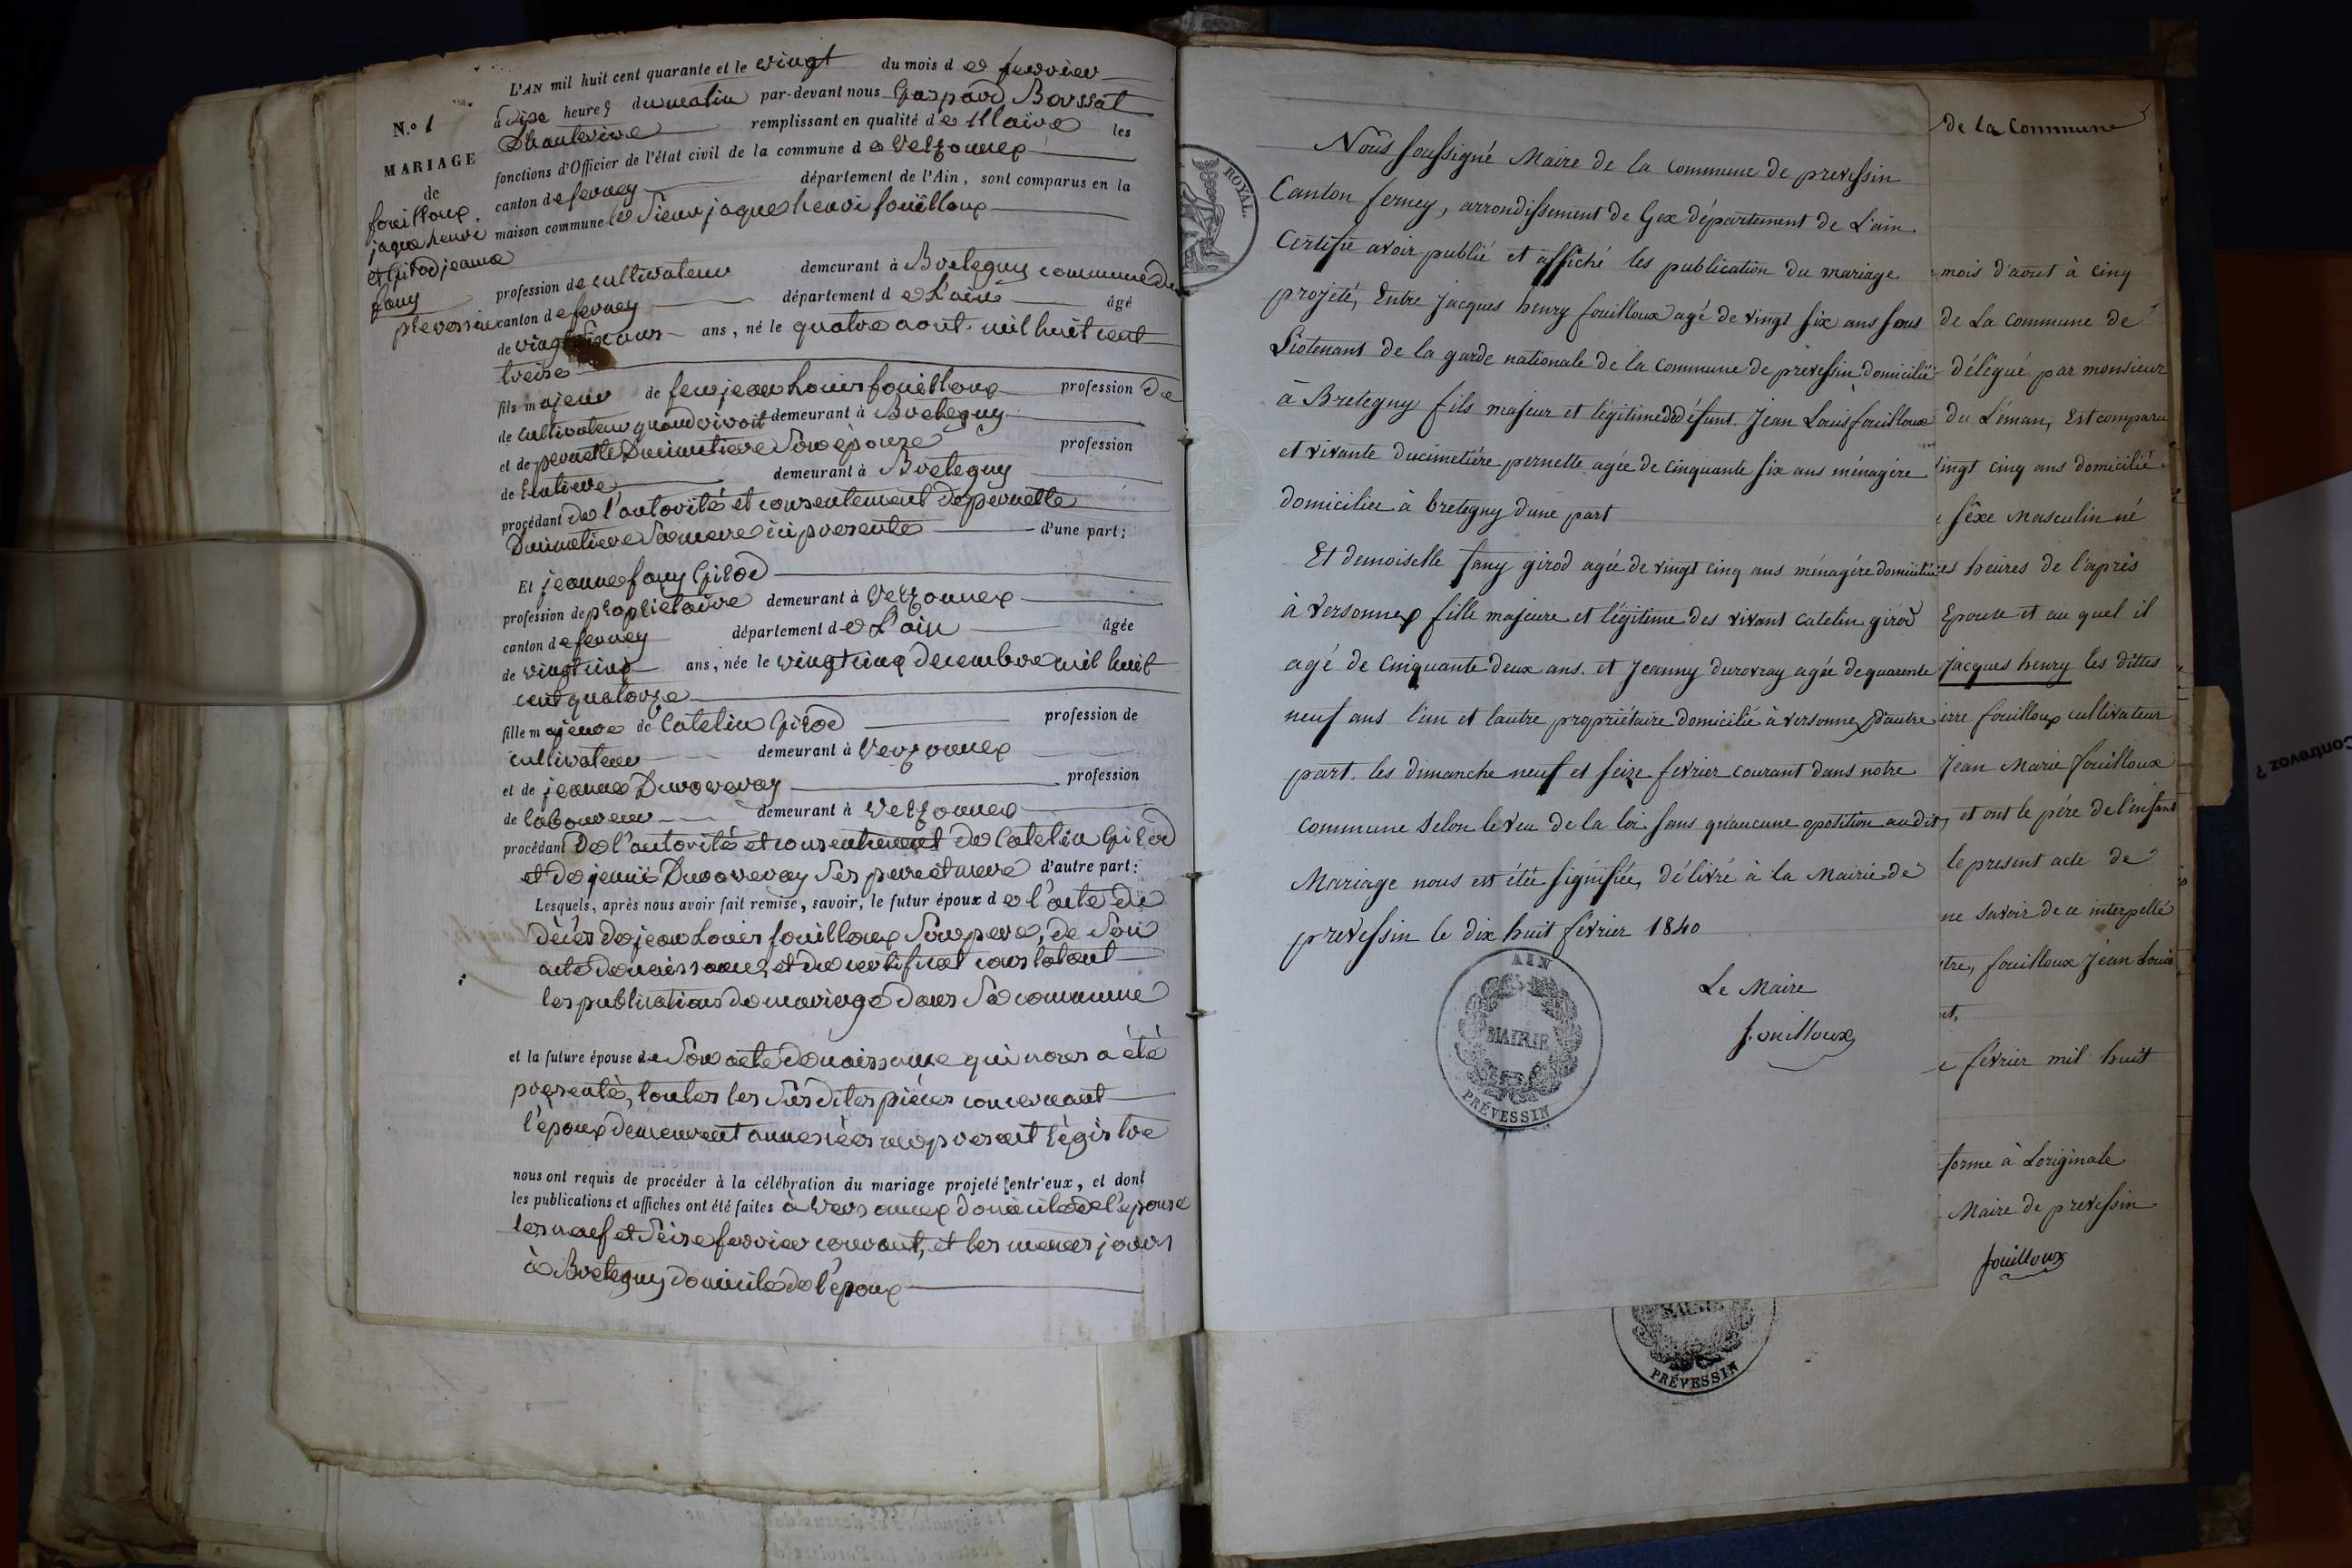 N.o 1
MARIAGE
de
fouilloux
jaque henri
et Girod jeanne
fany
L'AN mil huit cent quarante et le vingt du mois de fevrier
à dix heures du matin par-devant nous Gaspard Bossat
D'hauterive remplissant en qualité de Maire les
fonctions d'Officier de l'état civil de la commune de Versonnex
canton de ferney département de l'Ain, sont comparus en la
maison commune le Sieur jaque henri fouilloux
profession de cultivateur demeurant à Bretegny commune de
prevessin canton de ferney département de L'ain âgé
de vingt Six ans ans, né le quatre aout mil huit cent
treise
fils majeur de feu jean Louis fouilloux profession de
de cultivateur quand vivoit demeurant à Bretegny
et de pernette Ducimetiere Son épouse profession
de demeurant à Bretegny
procédant de l'autorité et consentement de pernette
Ducimetiere Sa mere ici presente d'une part;
Et jeanne fany Girod
profession de propriétaire demeurant à Versonnex
canton de ferney département de L'ain âgée
de vingt cinq ans, née le vingt cinq decembre mil huit
cent quatorze
fille majeure de Catelin Girod profession de
cultivateur demeurant à Versonnex
et de jeanne Durovray profession
de laboureur demeurant à Versonnex
procédant De l'autorité et consentement de Catelin Girod
et de jenni Durovray Ses pere et mere d'autre part:
Lesquels, après nous avoir fait remise, savoir, le futur époux de l'acte de
décés de jean Louis fouilloux Son pere, de Son
acte de naissance, et du certificat constatant
les publications de mariage dans Sa commune
et la future épouse de Son acte de naissance qui nous a été
presenté, toutes les Susdites piéces concernant
l'époux demeurent annexées au present régistre
nous ont requis de procéder à la célébration du mariage projeté entr'eux, et dont
les publications et affiches ont été faites à Versonnex domicile de l'épouse
les neuf et Seise fevrier courant, et les memes jours
à Bretegny domicile de l'époux
ROYAL.
Nous soussigné Maire de la Commune de prevessin
Canton ferney, arrondissement de Gex département de L'ain
Certifie avoir publié et affiché les publication du mariage
projeté, Entre Jacques henry fouilloux agé de vingt six ans sous
Liotenant de la garde nationale de la commune de prevessin domicilié
à Bretegny fils majeur et légitime de défunt Jean Louis fouilloux
et vivante ducimetiére pernette agée de cinquante six ans ménagére
domiciliée à bretegny d'une part
Et demoiselle fany girod agée de vingt cinq ans ménagére domiciliée
à versonnex fille majeure et légitime des vivant catelin girod
agé de Cinquante deux ans. et Jeanny durovray agée de quarente
neuf ans l'un et l'autre propriétaire domicilié à versonnex d'autre
part. les dimanche neuf et seize fevrier courant dans notre
commune selon le veu de la loi sans qu'aucune oposition audit
Mariage nous est étée signifiée, délivré à la Mairie de
prevessin le dix huit février 1840
Le Maire
fouilloux
AIN
MAIRIE
PRÉVESSIN
de la Commune
mois d'aout à cinq
de La commune de
délégué par monsieur
du Léman, Est comparu
vingt cinq ans domicilié
séxe Masculin né
heures de l'aprés
Epouse et au quel il
jacques henry les dittes
fouilloux cultivateur
Jean Marie fouilloux
et ont le pére de l'enfant
le present acte de
ne savoir de ce interpellé
fouilloux Jean Louis
février mil huit
forme à Loriginale
Maire de prevessin
fouilloux
MAIRIE
PRÉVESSIN
Controvez ?